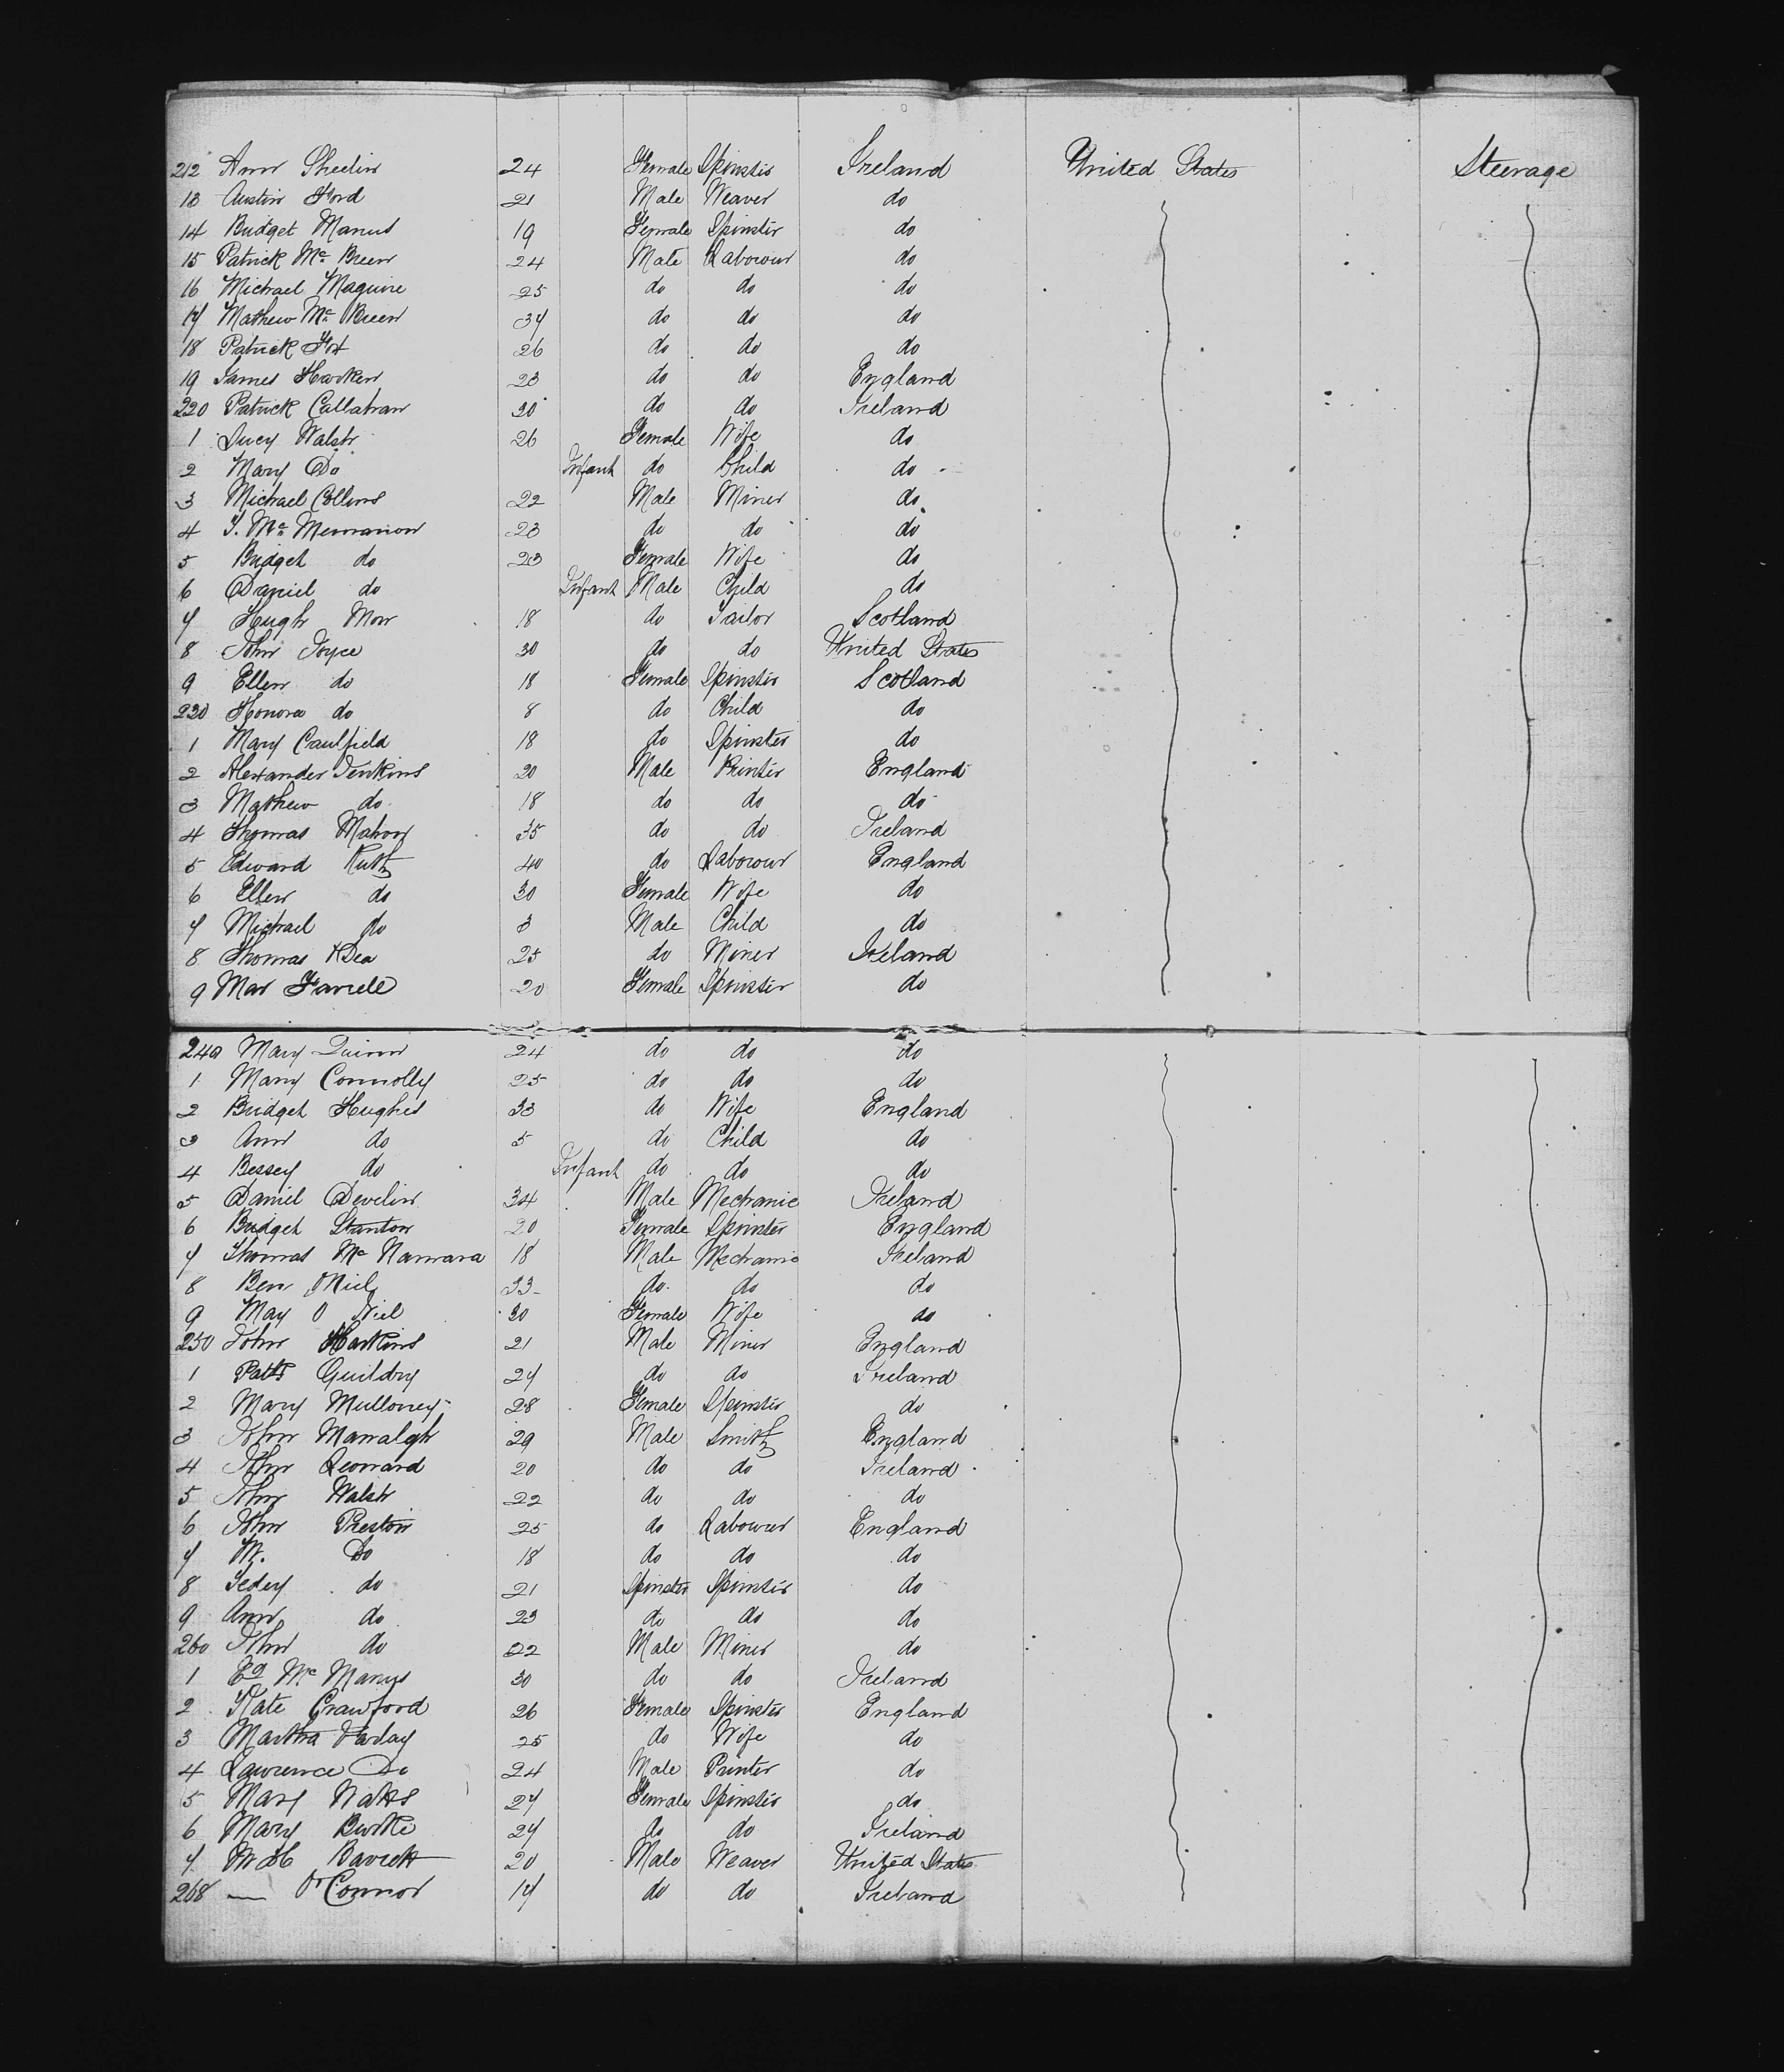 212 Ann Sheelin 24 Female Spinster Ireland United States Steerage
13 Austin Ford 21 Male Weaver do
14 Bridget Manus 19 Female Spinster do
15 Patrick Mc Breen 24 Male Labourer do
16 Michael Maguire 25 do do do
17 Mathew Mc Breen 34 do do do
18 Patrick Fox 26 do do do
19 James Hawken 23 do do England
220 Patrick Callahan 30 do do Ireland
1 Lucy Walsh 26 Female Wife do
2 Mary Do Infant do Child do
3 Michael Collins 22 Male Miner do
4 T. Mc Menamon 23 do do do
5 Bridget do 23 Female Wife do
6 Daniel do Infant Male Child do
7 Hugh Mow 18 do Tailor Scotland
8 John Joyce 30 do do United States
9 Ellen do 18 Female Spinster Scotland
230 Honora do 8 do Child do
1 Mary Caulfield 18 do Spinster do
2 Alexander Jenkins 20 Male Printer England
3 Mathew do 18 do do do
4 Thomas Mahon 35 do do Ireland
5 Edward Ruth 40 do Labourer England
6 Ellen do 30 Female Wife do
7 Michael do 3 Male Child do
8 Thomas O'Dea 25 do Miner Ireland
9 Mar Farrell 20 Female Spinster do
240 Mary Quinn 24 do do do
1 Mary Connolly 25 do do do
2 Bridget Hughes 33 do Wife England
3 Ann do 5 do Child do
4 Bessey do Infant do do do
5 Daniel Develin 34 Male Mechanic Ireland
6 Bridget Stanton 20 Female Spinster England
7 Thomas Mc Namara 18 Male Mechanic Ireland
8 Ben O'Niel 33 do do do
9 May O Niel 30 Female Wife do
250 John Harkins 21 Male Miner England
1 Patk Guildry 27 do do Ireland
2 Mary Mulloney 28 Female Spinster do
3 John Manalgh 29 Male Smith England
4 John Leonard 20 do do Ireland
5 John Walsh 22 do do do
6 John Preston 25 do Labourer England
7 W. Do 18 do do do
8 Tedey do 21 Spinster Spinster do
9 Ann do 23 do do do
260 John do 22 Male Miner do
1 Ed Mc Manus 30 do do Ireland
2 Kate Crawford 26 Female Spinster England
3 Martha Varlay 25 do Wife do
4 Lawrence Do 24 Male Printer do
5 Mary Watts 27 Female Spinster do
6 Mary Burke 27 do do Ireland
7 W H Bavick 20 Male Weaver United States
268 — O'Connor 17 do do Ireland